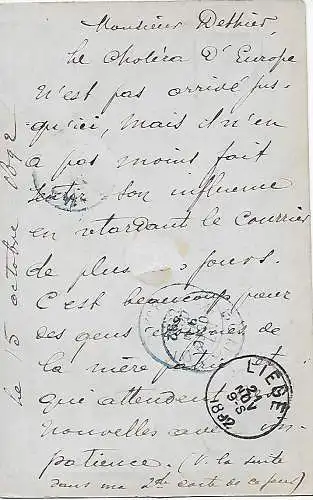 Monsieur Dethier,
Le Choléra d'Europe
n'est pas arrivé jus-
qu'ici, mais il n'en
a pas moins fait
sentir son influence
en retardant le courrier
de plus jours.
C'est beaucoup pour
des gens
de la mère
qui attendent
nouvelles avec im-
patience. (V. la suite
dans ma 2de carte de ce jour)
le 15 octobre 1892
LIEGE
21
NOV
9-S
1892